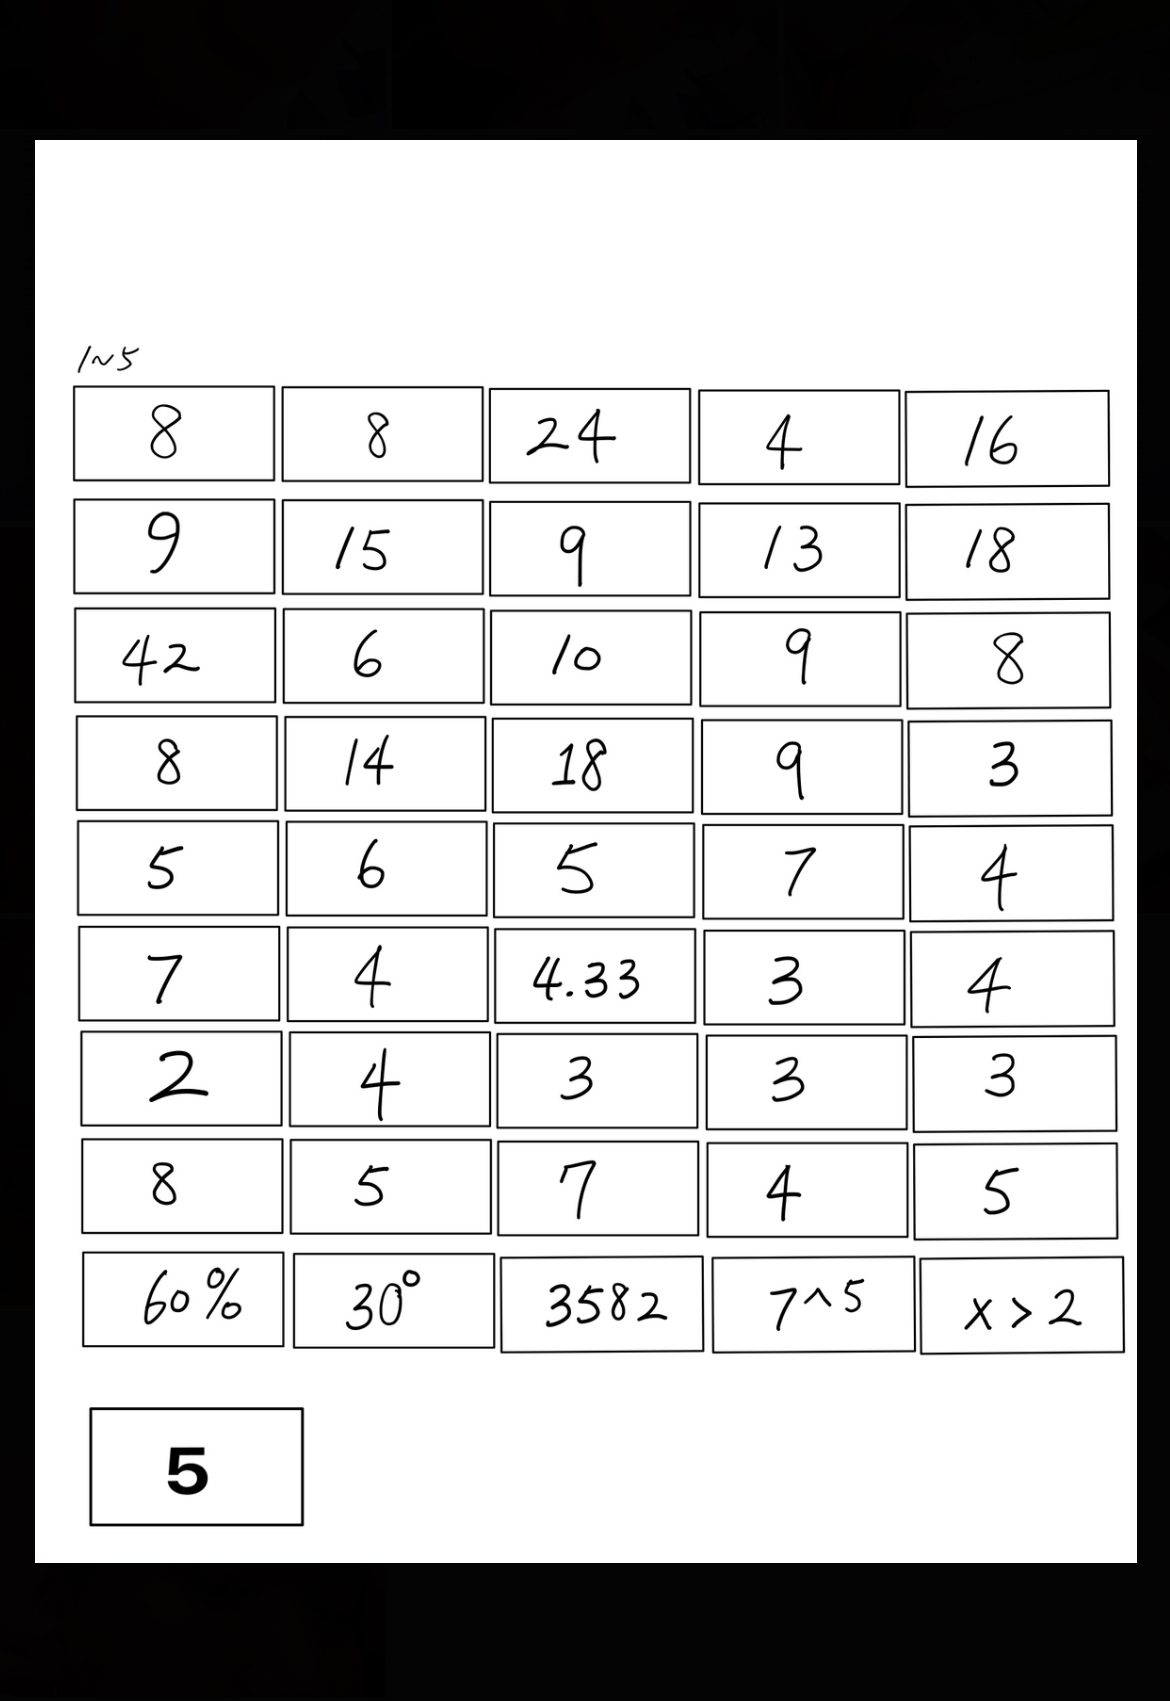 1~5
8 8 24 4 16
9 15 9 13 18
42 6 10 9 8
8 14 18 9 3
5 6 5 7 4
7 4 4.33 3 4
2 4 3 3 3
8 5 7 4 5
60% 30° 3582 7^5 x > 2
5